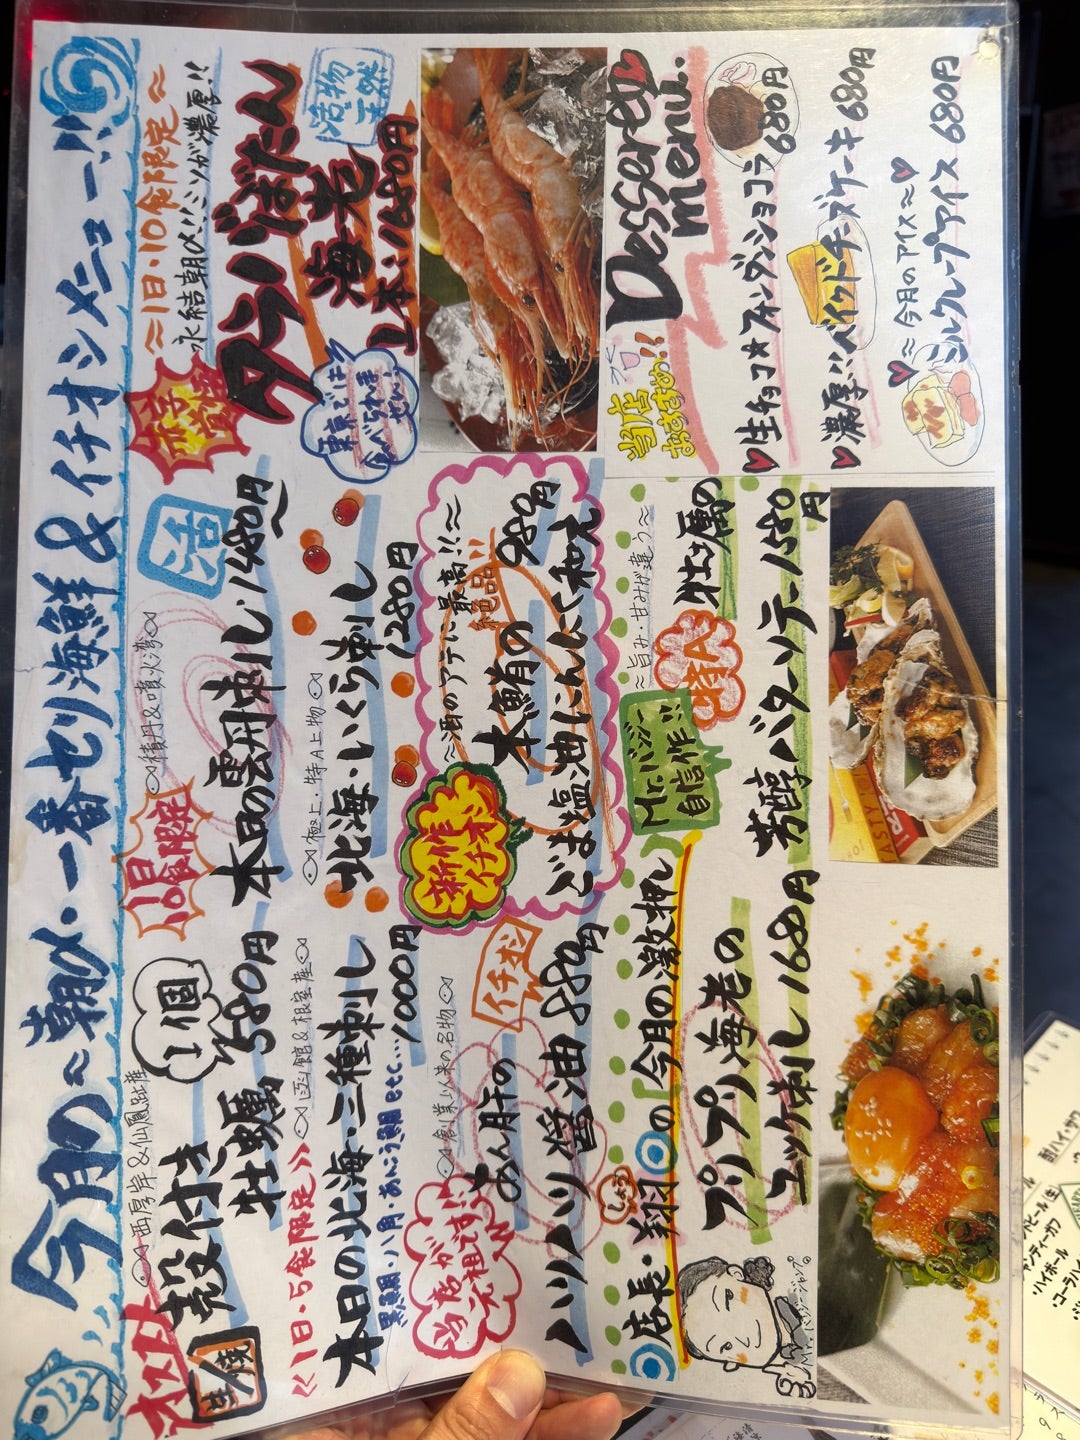 今月の〜朝〆・一番セリ海鮮&イチオシメニュー!!
オススメ
生 焼
西厚岸&仙鳳趾産
殻付き
牡蠣 580円
1個
1日限定
積丹&噴火湾
活
本日の雲丹刺し 1480円〜
赤字覚悟
≈1日・10食限定≈
氷結朝〆!!ミソが濃厚!!
タラバぼたん
海老
1本 1680円
活物
天然
東京では
食べられま
せん!
≪1日・5食限定≫
函館&根室産
本日の北海・三種刺し
黒鯛・八角・あんこう etc... 1000円
極上・特A上物
北海・いくら刺し
1280円
当店が
元祖です!
創業以来の名物
イチ押
あん肝の
ハツハツ醤油 880円
新作
イチオシ
〜酒のアテに最高!!〜
絶品!!
本鮪の 980円
ごま塩油にんにく和え
Dessert
menu.
当店
おすすめ!!
生チョコ★フォンダンショコラ 680円
濃厚!!ベイクドチーズケーキ 680円
〜今月のアイス〜
ミルクレープアイス 680円
店長・翔の今月の激押し
しょう
プリプリ海老の
ユッケ刺し 1680円
Mr.バンジージャンプ。
Mr.バンジー
自信作!!
特A
〜旨み・甘みが違う〜
牡蠣の
芳醇バターソテー 1580
円